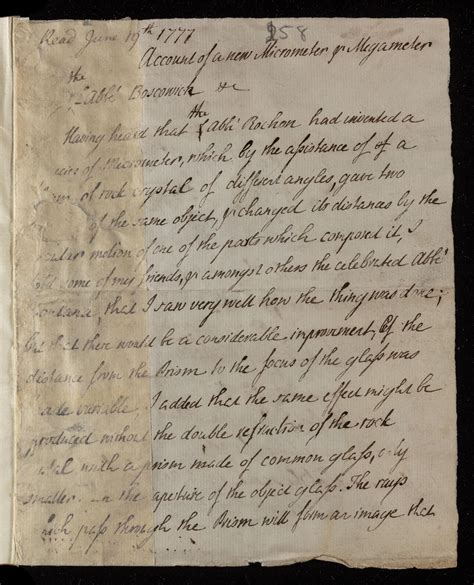 258
Read June 19th 1777
Account of a new Micrometer & Megameter
the
Abbé Boscowich &c
the
Having heard that Abbé Rochon had invented a
of Micrometer, which by the assistance of a
of rock crystal of different angles, gave two
of the same object, & changed its distances by the
motion of one of the parts which composed it, I
told some of my friends, & amongst others the celebrated Abbé
Fontana, that I saw very well how the thing was done;
that there would be a considerable improvement, if the
distance from the Prism to the focus of the glass was
made variable; I added that the same effect might be
produced without the double refraction of the rock
with a prism made of common glass, only
smaller in the aperture of the object glass. The rays
which pass through the Prism will form an image that